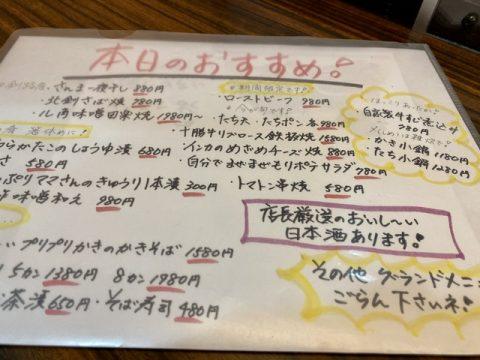 本日のおすすめ!
さんま一夜干し 880円
北釧さば焼 980円
味噌田楽焼 1980円〜
箸休めに!
たこのしょうゆ漬 680円
さ 580円
ぷりママさんのきゅうり1本漬 300円
味噌和え 980円
プリプリかきのかきそば 1580円
5カン 1380円 8カン 1980円
茶漬 650円・そば寿司 480円
期間限定です!
・ローストビーフ 980円
・たち天・たちポン 各980円
・十勝牛リブロース鉄板焼 1580円
・インカのめざめチーズ焼 880円
・自分でまぜまぜもりポテサラダ 780円
・トマトン串焼 580円
自家製牛すじ煮込み
・かき小鍋 1180円
・たち小鍋 1280円
店長厳選のおいし〜い
日本酒あります!
その他グランドメニ
ごらん下さいネ!